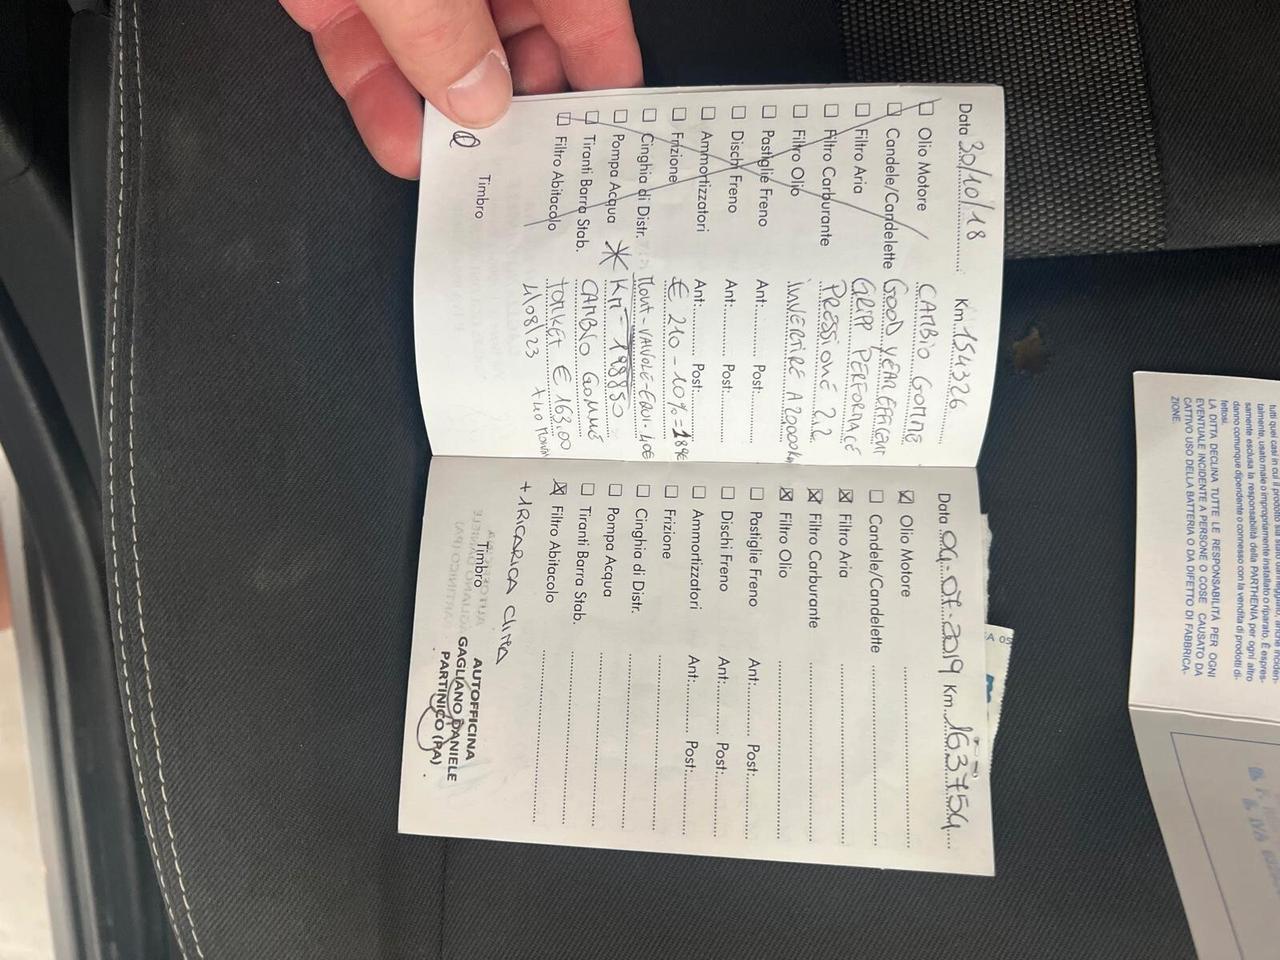 Data 30/10/18 Km 154326
Olio Motore CAMBIO GOMME
Candele/Candelette GOOD YEAR EFFICENT
Filtro Aria GRIPP PERFORMACE
Filtro Carburante PRESSIONE 2.2
Filtro Olio INVERTIRE A 20000 km
Pastiglie Freno Ant: Post:
Dischi Freno Ant: Post:
Ammortizzatori Ant: Post:
Frizione € 210 - 10% = 189€
Cinghia di Distr. MONT-VALVOLE-EQUI. 40€
Pompa Acqua * KM - 198850
Tiranti Barra Stab. CAMBIO GOMME
Filtro Abitacolo € 163,00
4/08/23 + 40
Timbro
Data 04-07-2019 Km 163754
Olio Motore
Candele/Candelette
Filtro Aria
Filtro Carburante
Filtro Olio
Pastiglie Freno Ant: Post:
Dischi Freno Ant: Post:
Ammortizzatori Ant: Post:
Frizione
Cinghia di Distr.
Pompa Acqua
Tiranti Barra Stab.
Filtro Abitacolo
+ 1 RICARICA CLIMA
Timbro
AUTOFFICINA
GAGLIANO DANIELE
PARTINICO (PA)
tutti quei casi in cui il prodotto sia stato
talmente usato male o impropriamente installato o riparato. È espres-
samente esclusa la responsabilità della PARTHENIA per ogni altro
danno comunque dipendente o connesso con la vendita di prodotti di-
fettosi.
LA DITTA DECLINA TUTTE LE RESPONSABILITÀ PER OGNI
EVENTUALE INCIDENTE A PERSONE O COSE CAUSATO DA
CATTIVO USO DELLA BATTERIA O DA DIFETTO DI FABBRICA-
ZIONE.